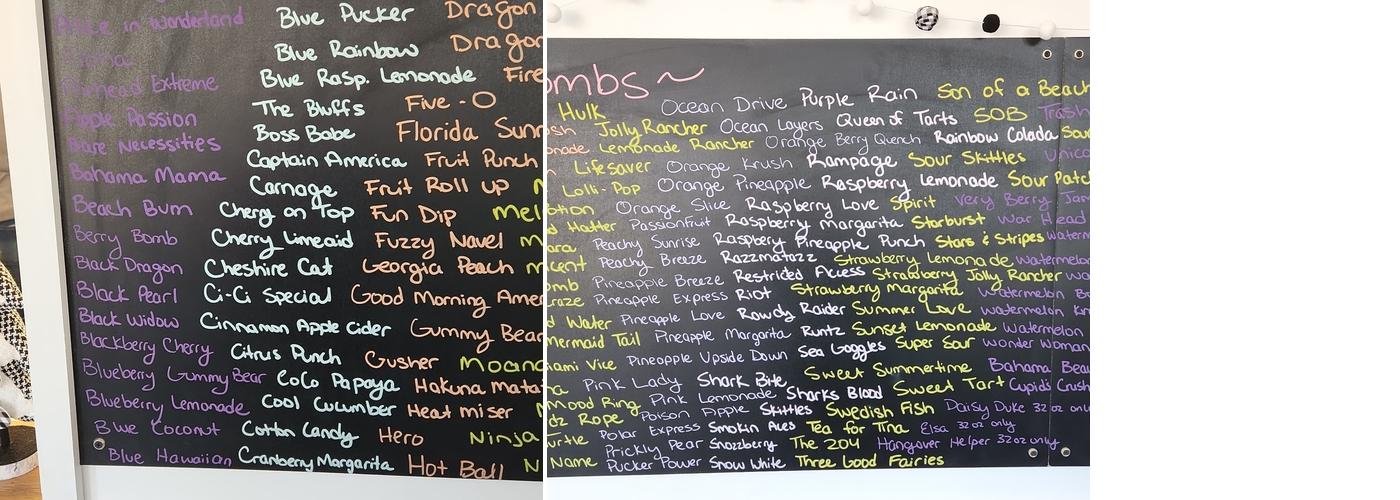 Alice in Wonderland Blue Pucker Dragon
Blue Rainbow Dragon
Airhead Extreme Blue Rasp. Lemonade Fire
Apple Passion The Bluffs Five-O
Bare Necessities Boss Babe Florida Sunr
Bahama Mama Captain America Fruit Punch
Beach Bum Carnage Fruit Roll up
Berry Bomb Cherry on Top Fun Dip Mel
Black Dragon Cherry Limeaid Fuzzy Navel
Black Pearl Cheshire Cat Georgia Peach
Black Widow Ci-Ci Special Good Morning Amer
Blackberry Cherry Cinnamon Apple Cider Gummy Bear
Blueberry Gummy Bear Citrus Punch Gusher Moana
Blueberry Lemonade CoCo Papaya Hakuna Mata
Blue Coconut Cool Cucumber Heat miser
Blue Hawaiian Cotton Candy Hero Ninja
Cranberry Margarita Hot Ball N
ombs ~
Hulk Ocean Drive Purple Rain Son of a Beach
osh Jolly Rancher Ocean Layers Queen of Tarts SOB Trash
onade Lemonade Rancher Orange Berry Quench Rainbow Colada Sour
Lifesaver Orange Krush Rampage Sour Skittles Unico
Lolli-Pop Orange Pineapple Raspberry Lemonade Sour Patch
otion Orange Slice Raspberry Love Spirit Very Berry Jam
d Hatter Passionfruit Raspberry Margarita Starburst War Head
ara Peachy Sunrise Raspbery Pineapple Punch Stars & Stripes Waterm
icent Peachy Breeze Razzmatazz Strawberry Lemonade Watermelon
omb Pineapple Breeze Restricted Access Strawberry Jolly Rancher Wa
craze Pineapple Express Riot Strawberry Margarita Watermelon Br
d Water Pineapple Love Rowdy Raider Summer Love Watermelon Kin
Mermaid Tail Pineapple Margarita Runtz Sunset Lemonade Watermelon
iami Vice Pineapple Upside Down Sea Goggles Super Sour Wonder Woman
na Pink Lady Shark Bite Sweet Summertime Bahama Beau
Mood Ring Pink Lemonade Sharks Blood Sweet Tart Cupid's Crush
dz Rope Poison Apple Skittles Swedish Fish Daisy Duke 32oz only
urtle Polar Express Smokin Aces Tea for Tina Elsa 32oz only
Prickly Pear Snozzberry The 204 Hangover Helper 32oz only
Name Pucker Power Snow White Three Good Fairies